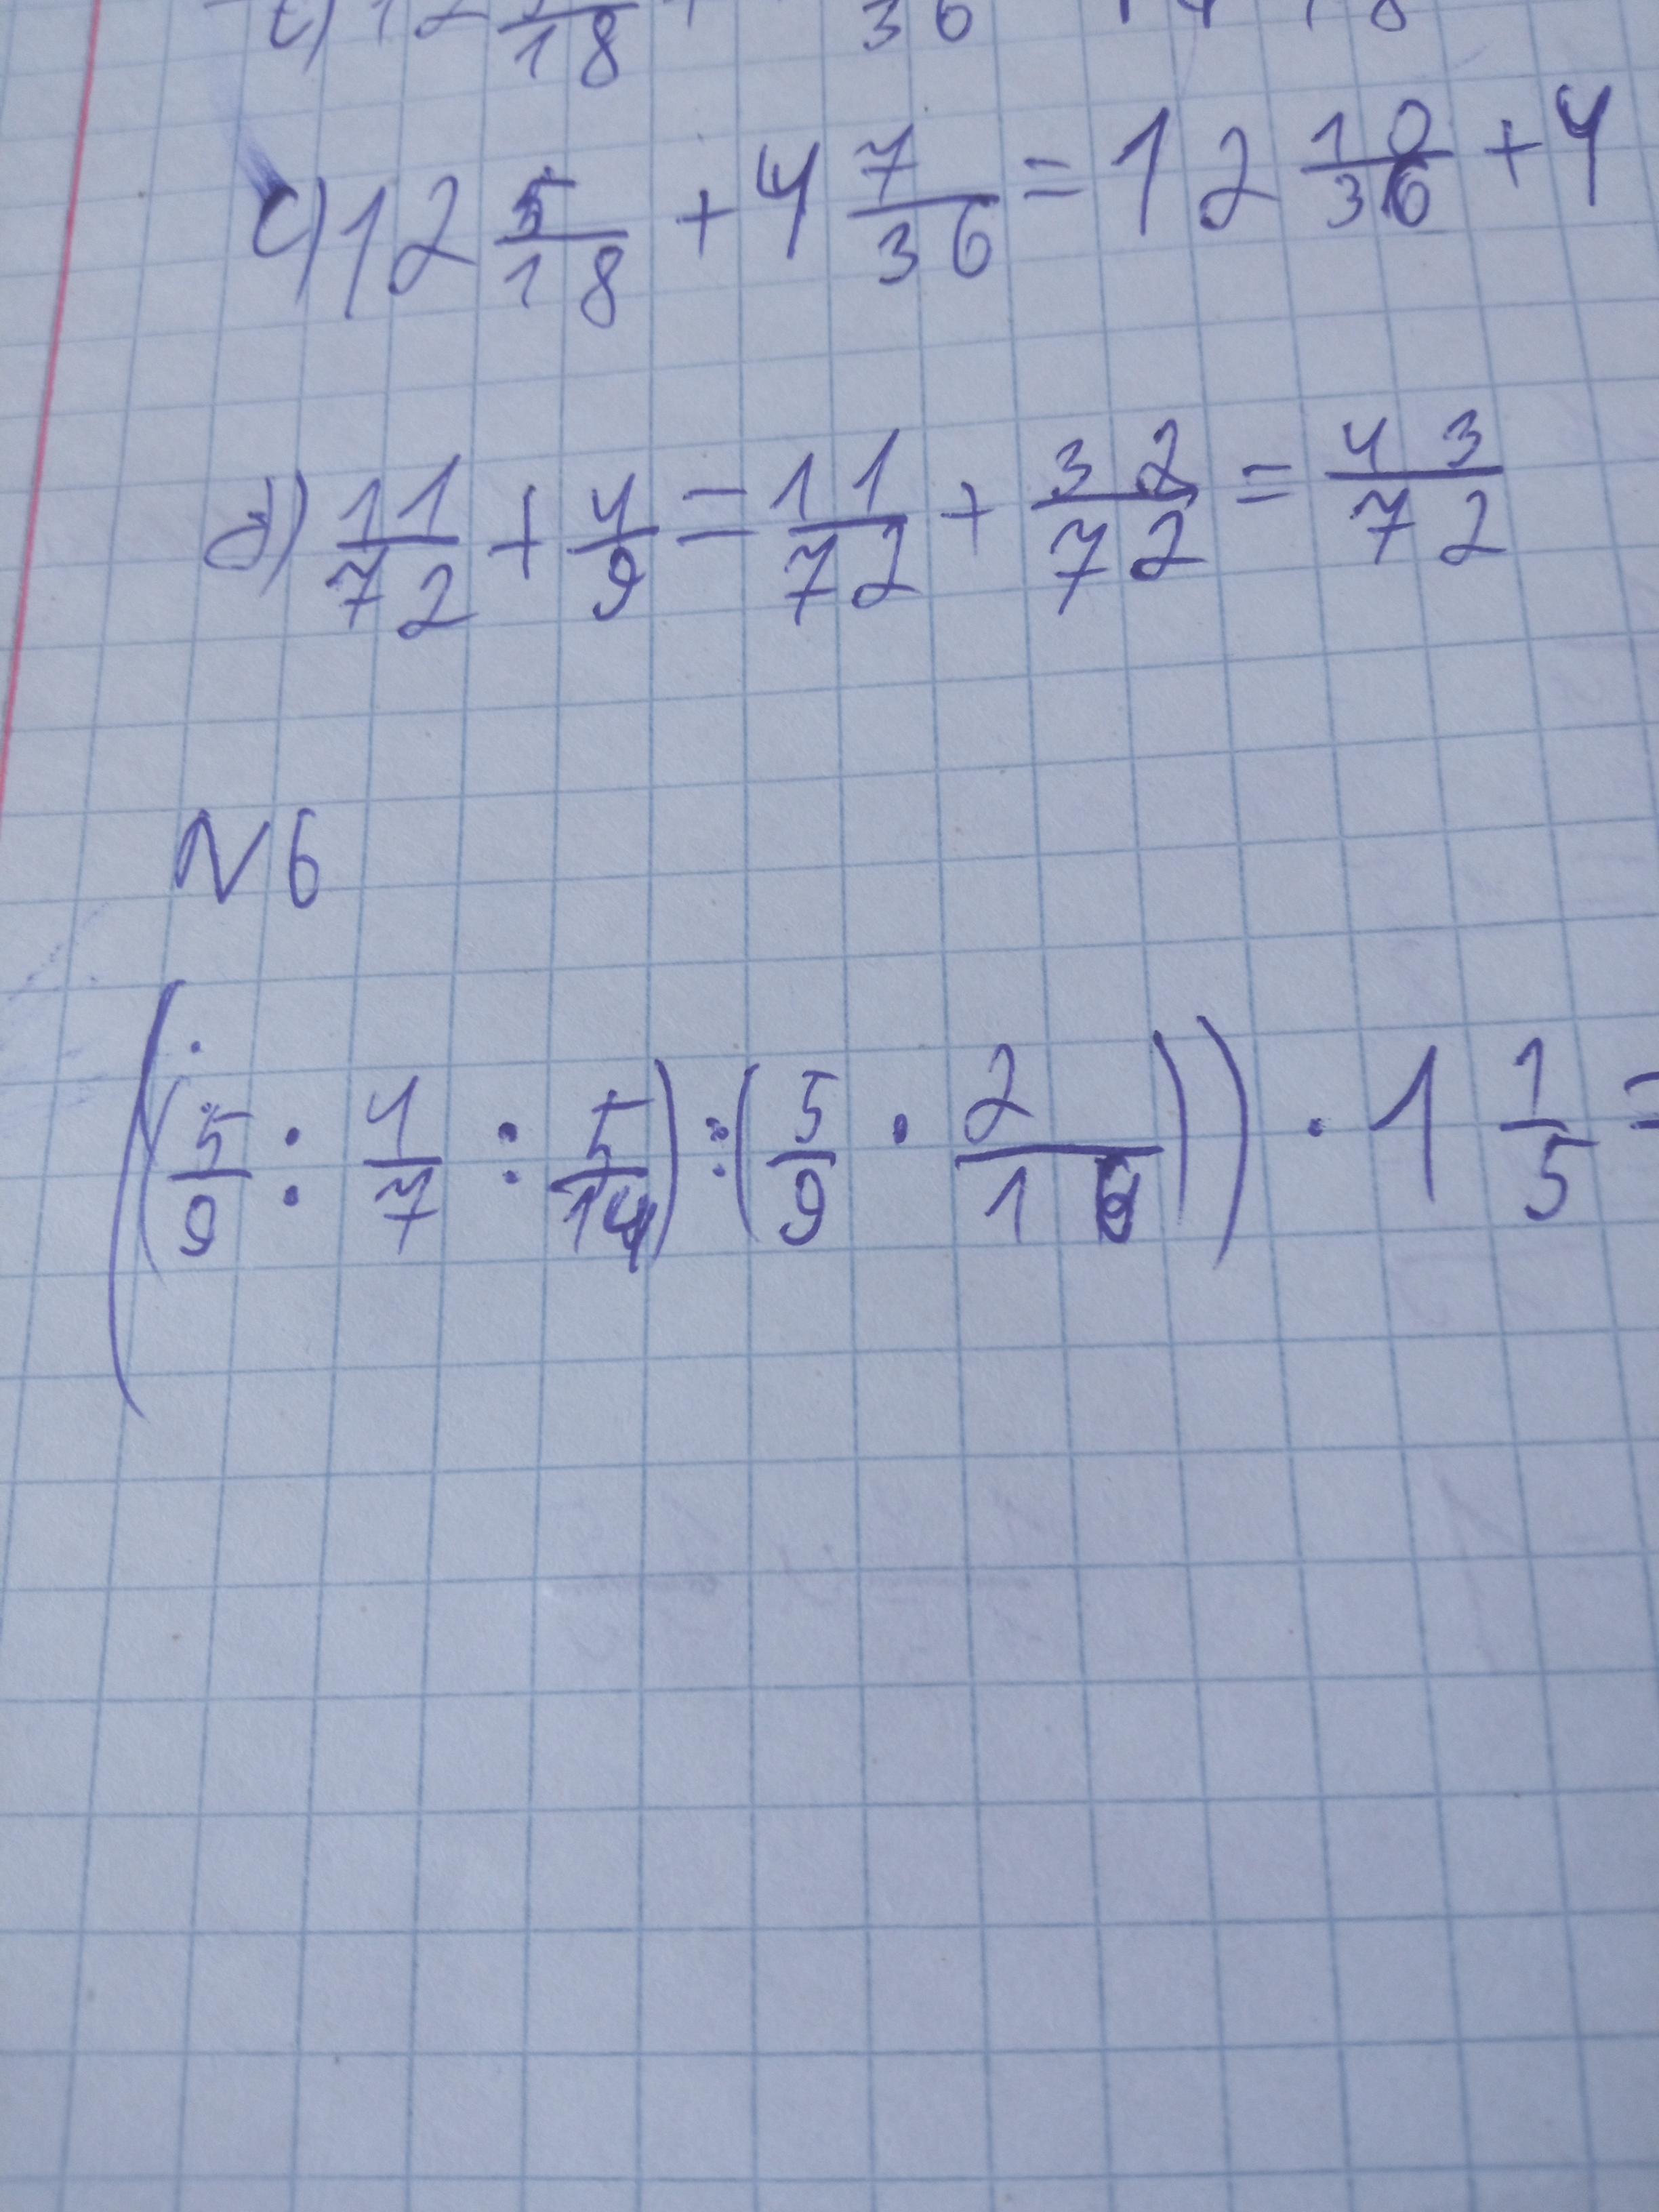 12 5/18 + 36
c) 12 5/18 + 4 7/36 = 12 10/36 + 4
d) 11/72 + 4/9 = 11/72 + 32/72 = 43/72
N 6
((5/9 : 4/7 : 5/14) : (5/9 · 2/16)) · 1 1/5 =